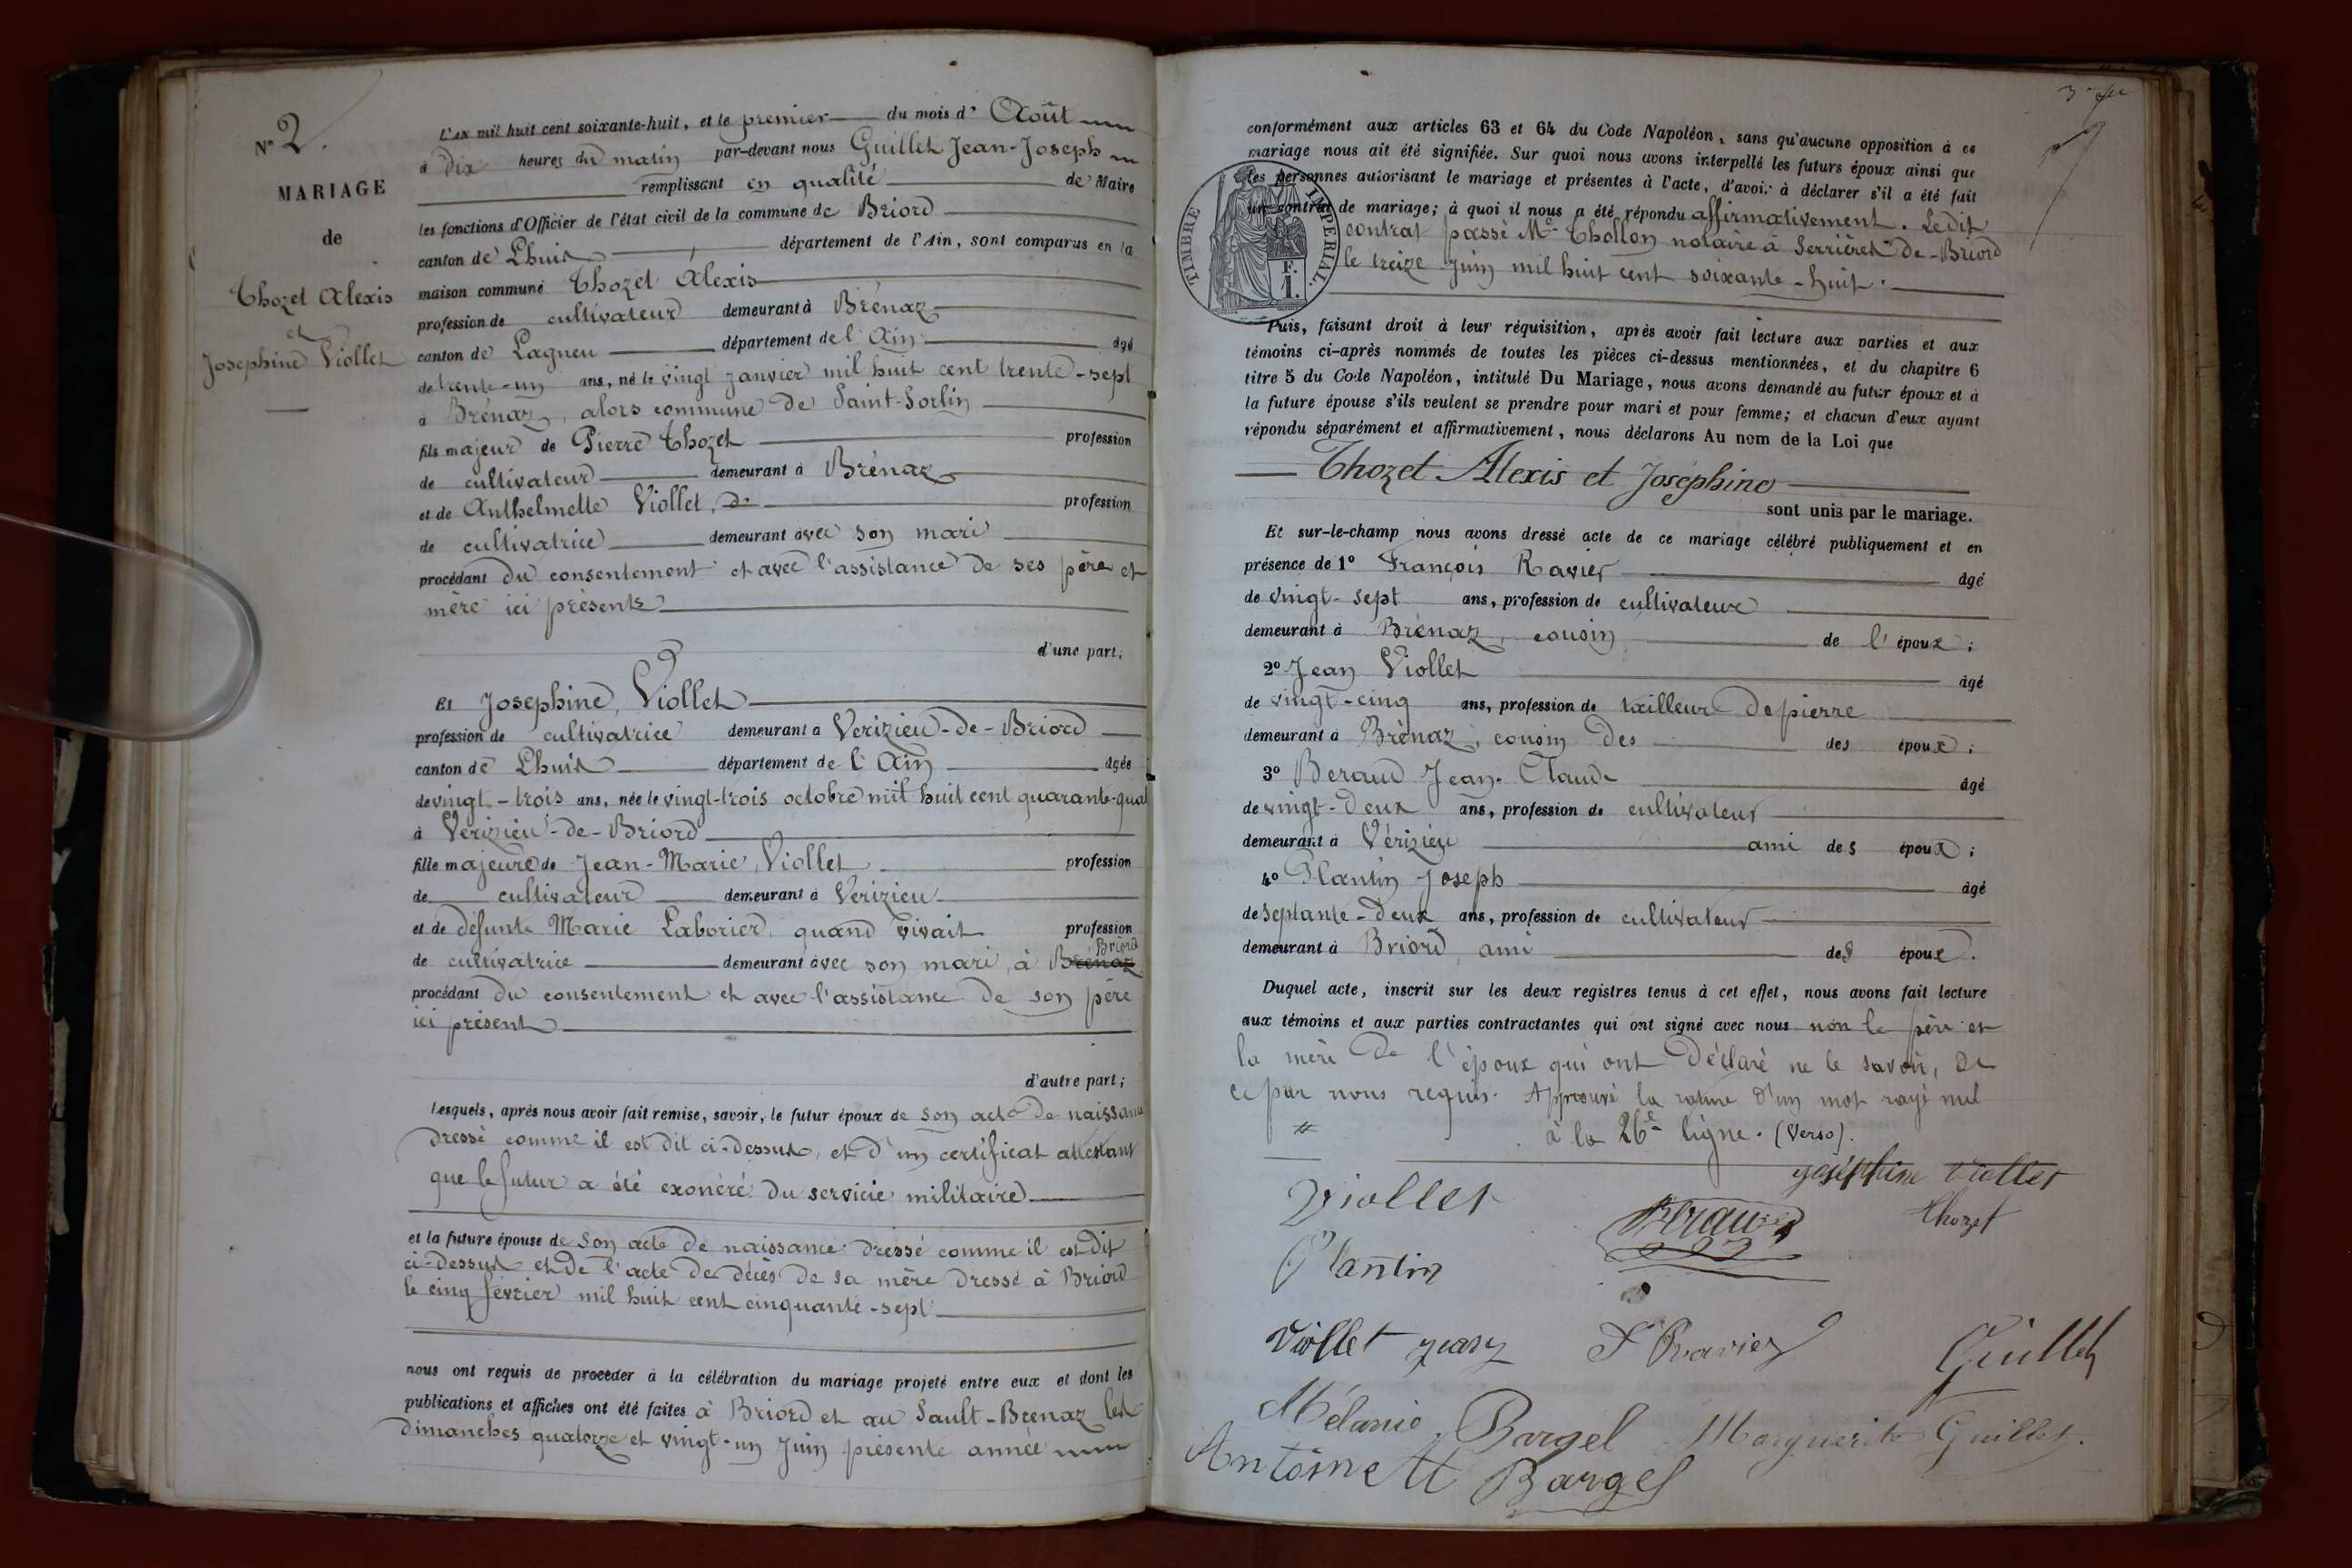 N° 2.
MARIAGE
de
Thozet Alexis
et
Josephine Viollet
L'AN mil huit cent soixante-huit, et le premier du mois d' Août
à dix heures du matin par-devant nous Guillet Jean-Joseph
remplissant en qualité de Maire
les fonctions d'Officier de l'état civil de la commune de Briord
canton de Lhuis département de l'Ain, sont comparus en la
maison commune Thozet Alexis
profession de cultivateur demeurant à Brénaz
canton de Lagneu département de l'Ain âgé
de trente-un ans, né le vingt Janvier mil huit cent trente-sept
à Brénaz, alors commune de Saint-Sorlin
fils majeur de Pierre Thozet profession
de cultivateur demeurant à Brénaz
et de Anthelmette Viollet, de profession
de cultivatrice demeurant avec son mari
procédant du consentement et avec l'assistance de ses père et
mère ici présents
d'une part;
Et Josephine Viollet
profession de cultivatrice demeurant à Verizieu-de-Briord
canton de Lhuis département de l'Ain âgée
de vingt-trois ans, née le vingt-trois octobre mil huit cent quarante-quat
à Verizieu-de-Briord
fille majeure de Jean-Marie Viollet profession
de cultivateur demeurant à Verizieu
et de défunte Marie Laborier quand vivait profession
Briord
de cultivatrice demeurant avec son mari, à Brénaz
procédant du consentement et avec l'assistance de son père
ici présent
d'autre part;
Lesquels, après nous avoir fait remise, savoir, le futur époux de son acte de naissance
dressé comme il est dit ci-dessus, et d'un certificat attestant
que le futur a été exonéré du service militaire
et la future épouse de son acte de naissance dressé comme il est dit
ci-dessus et de l'acte de décès de sa mère dressé à Briord
le cinq février mil huit cent cinquante-sept
nous ont requis de proceder à la célébration du mariage projeté entre eux et dont les
publications et affiches ont été faites à Briord et au Sault-Brenaz les
dimanches quatorze et vingt-un Juin présente année
conformément aux articles 63 et 64 du Code Napoléon, sans qu'aucune opposition à ce
mariage nous ait été signifiée. Sur quoi nous avons interpellé les futurs époux ainsi que
les personnes autorisant le mariage et présentes à l'acte, d'avoir à déclarer s'il a été fait
un contrat de mariage; à quoi il nous a été répondu affirmativement. Ledit
contrat passé Me Thollon notaire à Serrières-de-Briord
le treize Juin mil huit cent soixante-huit.
TIMBRE IMPERIAL.
F.
1.
Puis, faisant droit à leur réquisition, après avoir fait lecture aux parties et aux
témoins ci-après nommés de toutes les pièces ci-dessus mentionnées, et du chapitre 6
titre 5 du Code Napoléon, intitulé Du Mariage, nous avons demandé au futur époux et à
la future épouse s'ils veulent se prendre pour mari et pour femme; et chacun d'eux ayant
répondu séparément et affirmativement, nous déclarons Au nom de la Loi que
Thozet Alexis et Joséphine
sont unis par le mariage.
Et sur-le-champ nous avons dressé acte de ce mariage célébré publiquement et en
présence de 1° François Ravier âgé
de vingt-sept ans, profession de cultivateur
demeurant à Brénaz, cousin de l'époux;
2° Jean Viollet âgé
de vingt-cinq ans, profession de tailleur de pierre
demeurant à Brénaz, cousin des des époux;
3° Beraud Jean-Claude âgé
de vingt-deux ans, profession de cultivateur
demeurant à Vérizieu ami des époux;
4° Plantin Joseph âgé
de septante-deux ans, profession de cultivateur
demeurant à Briord, ami des époux.
Duquel acte, inscrit sur les deux registres tenus à cet effet, nous avons fait lecture
aux témoins et aux parties contractantes qui ont signé avec nous non le père et
la mère de l'époux qui ont déclaré ne le savoir, de
ce par nous requis. Approuvé la rature d'un mot rayé nul
à la 26e ligne. (Verso).
joséphine viollet
Viollet
Beraud
thozet
Plantin
Viollet jean
F Ravier
Guillet
Mélanie Bargel
Marguerite Guillet.
Antoinette Bargel